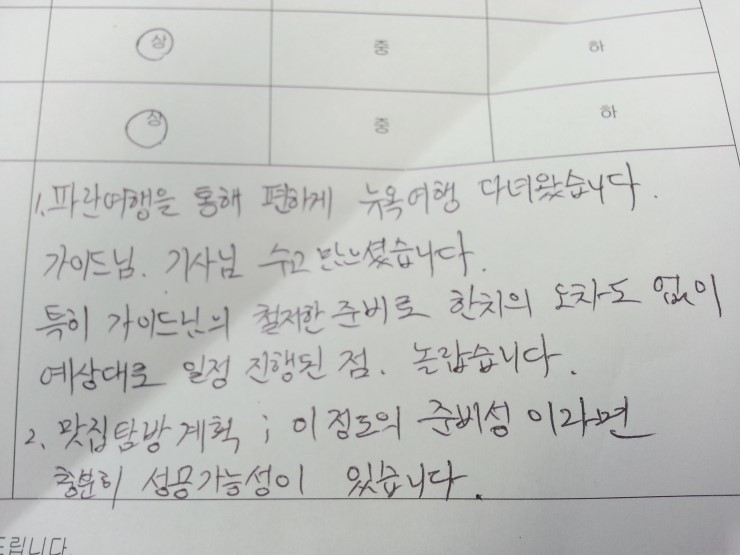 상 중 하
상 중 하
1. 파란여행을 통해 편하게 뉴욕여행 다녀왔습니다.
가이드님. 기사님 수고 많으셨습니다.
특히 가이드님의 철저한 준비로 한치의 오차도 없이
예상대로 일정 진행된 점. 놀랍습니다.
2. 맛집탐방계획 ; 이 정도의 준비성 이라면
충분히 성공가능성이 있습니다.
드립니다.